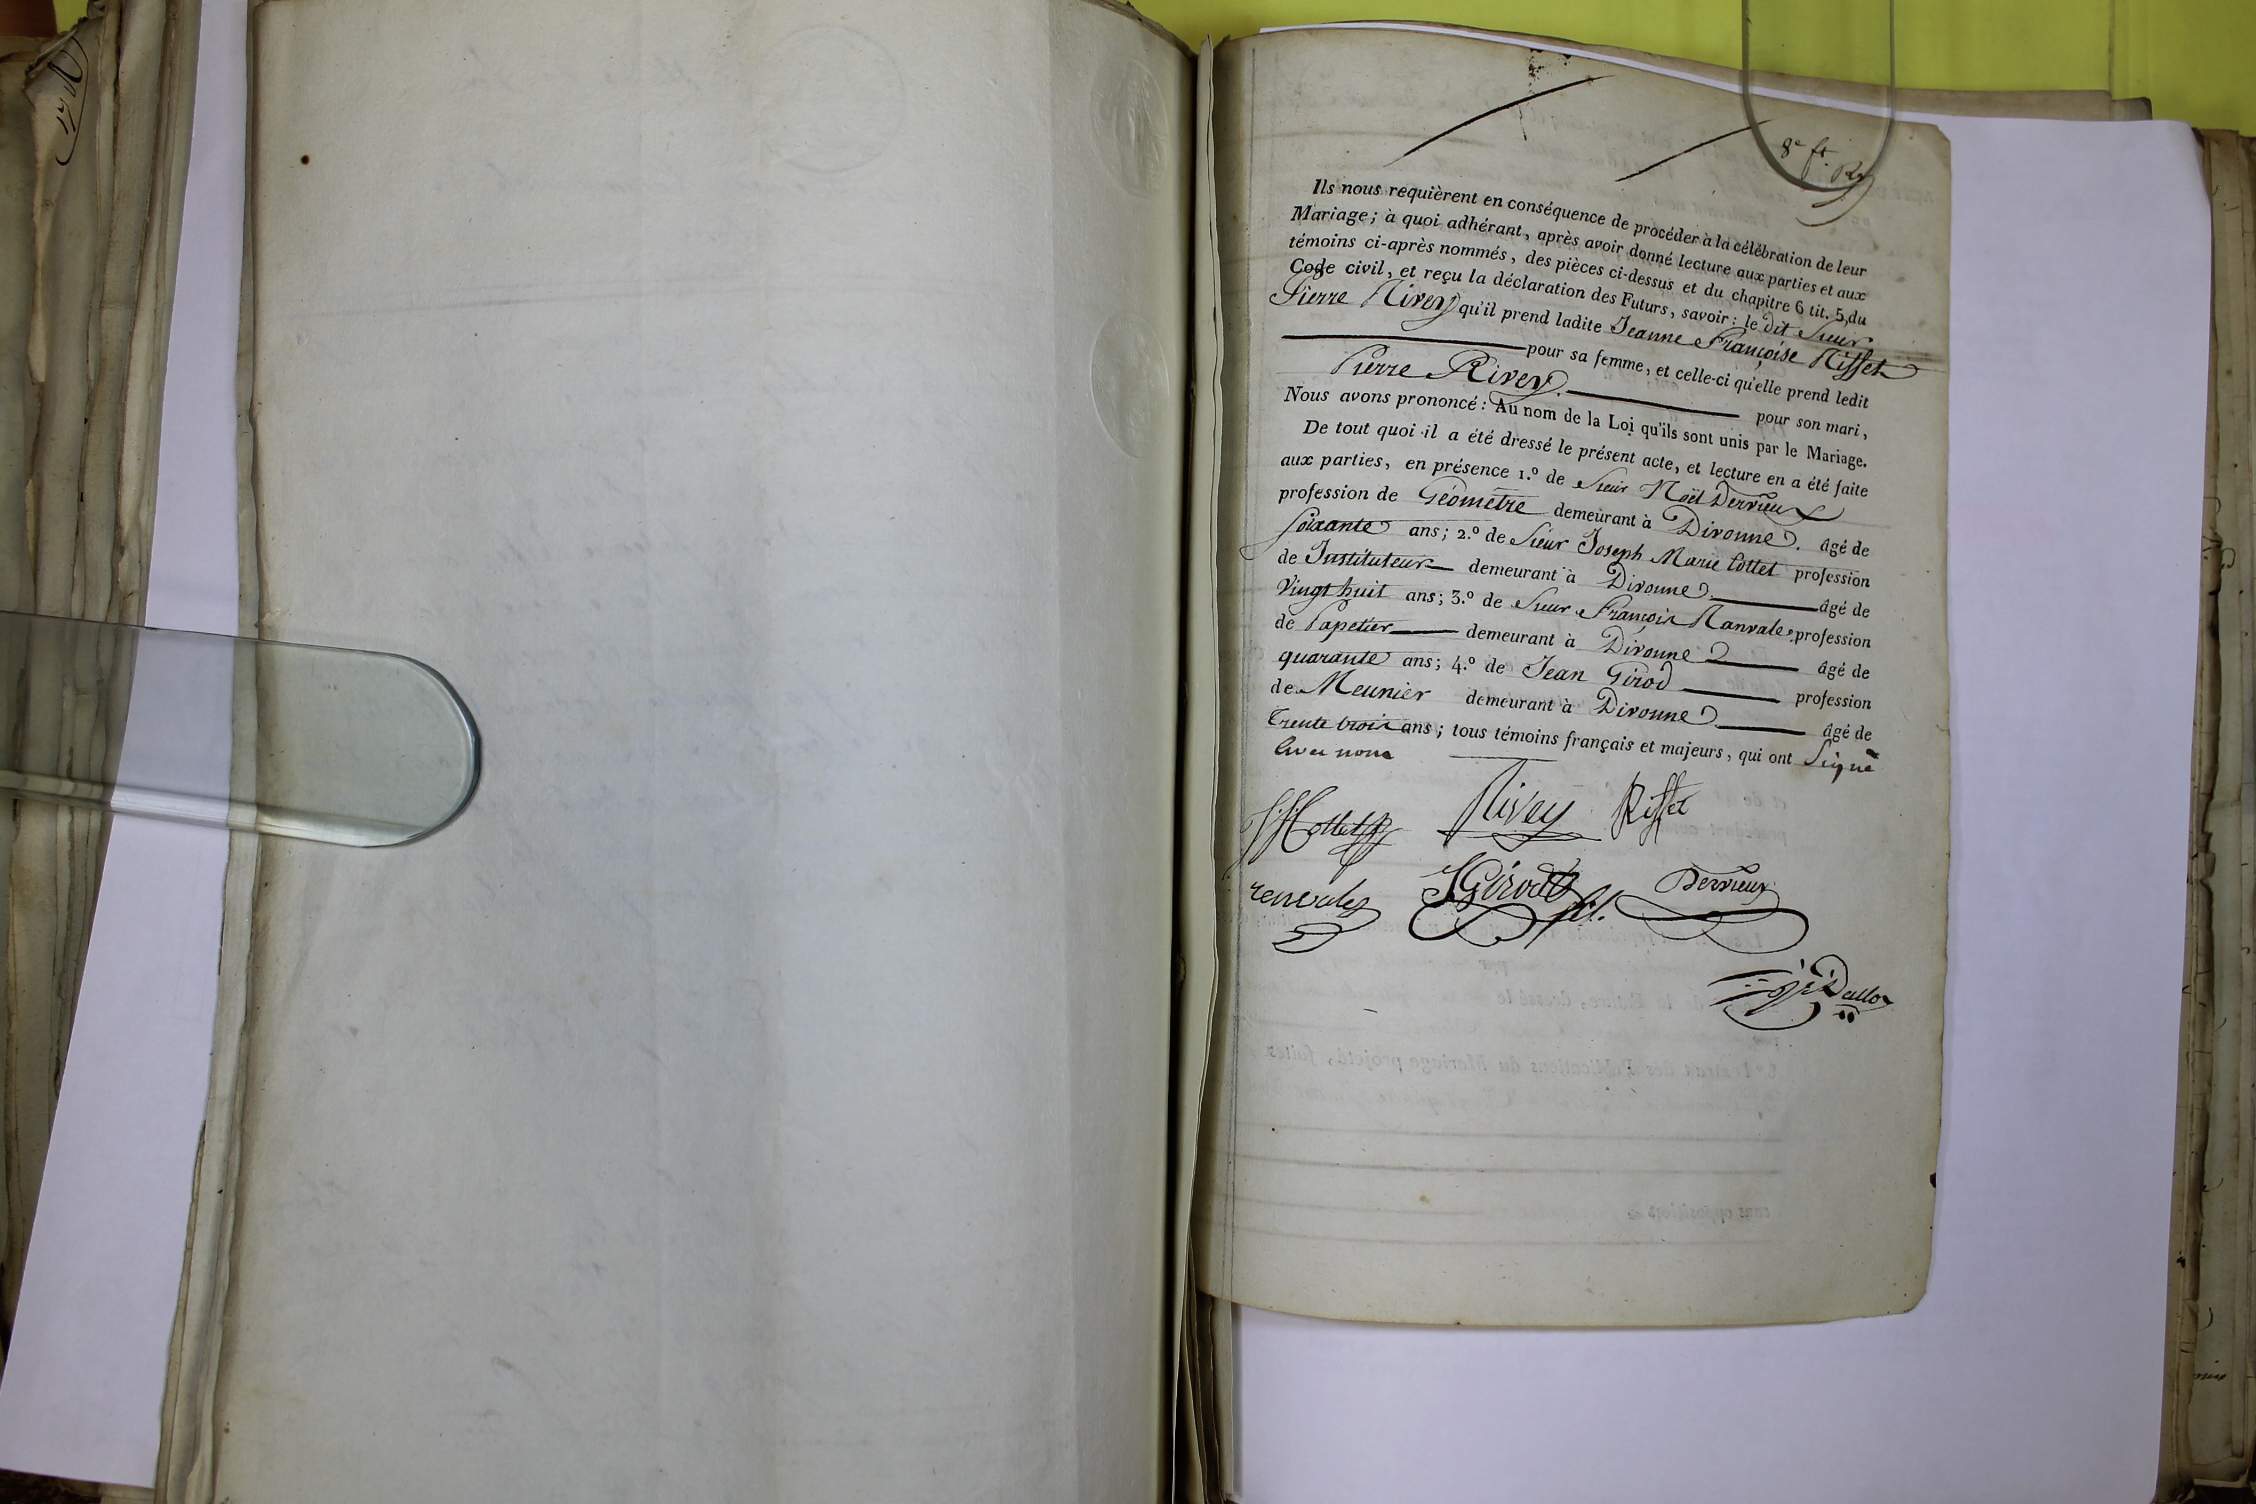 8e ft.
Ils nous requièrent en conséquence de procéder à la célébration de leur
Mariage; à quoi adhérant, après avoir donné lecture aux parties et aux
témoins ci-après nommés, des pièces ci-dessus et du chapitre 6 tit. 5, du
Code civil, et reçu la déclaration des Futurs, savoir: le dit Sieur
Pierre Rivey qu'il prend ladite Jeanne Françoise Risset
pour sa femme, et celle-ci qu'elle prend ledit
Pierre Rivey. pour son mari,
Nous avons prononcé: Au nom de la Loi qu'ils sont unis par le Mariage.
De tout quoi il a été dressé le présent acte, et lecture en a été faite
aux parties, en présence 1.º de Sieur Noël Derrieux
profession de Géomètre demeurant à Divonne. âgé de
soixante ans; 2.º de Sieur Joseph Marie Collet profession
de Instituteur demeurant à Divonne âgé de
Vingt huit ans; 3.º de Sieur François Ranvales profession
de Papetier demeurant à Divonne âgé de
quarante ans; 4.º de Jean Girod profession
de Meunier demeurant à Divonne âgé de
Trente trois ans; tous témoins français et majeurs, qui ont Signé
avec nous
Collet Rivey Risset
renvales JGirod fil. Derrieux